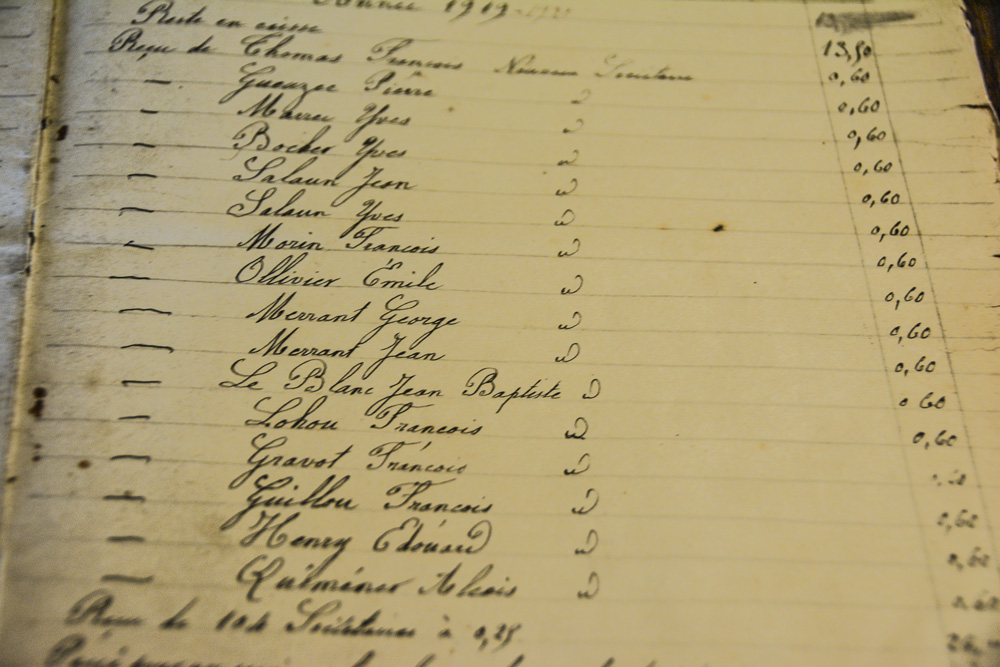 Année 1919
Reste en caisse 13,50
Reçu de Thomas François Nouveau Sociétaire 0,60
— Gueuzec Pierre " 0,60
— Marrec Yves " 0,60
— Bocher Yves " 0,60
— Salaun Jean " 0,60
— Salaun Yves " 0,60
— Morin François " 0,60
— Ollivier Émile " 0,60
— Merrant George " 0,60
— Merrant Jean " 0,60
— Le Blanc Jean Baptiste " 0,60
— Lohou François " 0,60
— Gravot François "
— Guillou François " 0,60
— Henry Édouard " 0,60
— Quiméner Alexis " 0,60
Reçu de 104 Sociétaires à 0,25